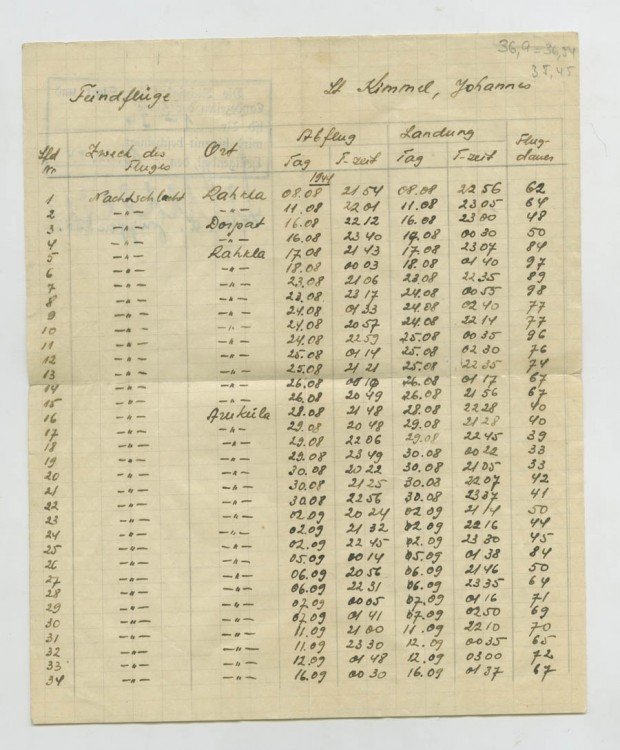 36,9 = 36,54
35,45
Feindflüge Lt Kimmel, Johannes
Lfd Nr Zweck des Fluges Ort Abflug Tag T-zeit Landung Tag T-zeit Flug-dauer
1944
1 Nachtschlacht Rahkla 08.08 21 54 08.08 22 56 62
2 -"- -"- 11.08 22 01 11.08 23 05 64
3 -"- Dorpat 16.08 22 12 16.08 23 00 48
4 -"- -"- 16.08 23 40 17.08 00 30 50
5 -"- Rahkla 17.08 21 43 17.08 23 07 84
6 -"- -"- 18.08 00 03 18.08 01 40 97
7 -"- -"- 23.08 21 06 23.08 22 35 89
8 -"- -"- 23.08 23 17 24.08 00 55 98
9 -"- -"- 24.08 01 33 24.08 02 40 77
10 -"- -"- 24.08 20 57 24.08 22 14 77
11 -"- -"- 24.08 22 59 25.08 00 35 96
12 -"- -"- 25.08 01 14 25.08 02 30 76
13 -"- -"- 25.08 21 21 25.08 22 35 74
14 -"- -"- 26.08 00 10 26.08 01 17 67
15 -"- -"- 26.08 20 49 26.08 21 56 67
16 -"- Aruküla 28.08 21 48 28.08 22 28 40
17 -"- -"- 29.08 20 48 29.08 21 28 40
18 -"- -"- 29.08 22 06 29.08 22 45 39
19 -"- -"- 29.08 23 49 30.08 00 22 33
20 -"- -"- 30.08 20 22 30.08 21 05 33
21 -"- -"- 30.08 21 25 30.08 22 07 42
22 -"- -"- 30.08 22 56 30.08 23 37 41
23 -"- -"- 02.09 20 24 02.09 21 14 50
24 -"- -"- 02.09 21 32 02.09 22 16 44
25 -"- -"- 02.09 22 45 02.09 23 30 45
26 -"- -"- 05.09 00 14 05.09 01 38 84
27 -"- -"- 06.09 20 56 06.09 21 46 50
28 -"- -"- 06.09 22 31 06.09 23 35 64
29 -"- -"- 07.09 00 05 07.09 01 16 71
30 -"- -"- 07.09 01 41 07.09 02 50 69
31 -"- -"- 11.09 21 00 11.09 22 10 70
32 -"- -"- 11.09 23 30 12.09 00 35 65
33 -"- -"- 12.09 01 48 12.09 03 00 72
34 -"- -"- 16.09 00 30 16.09 01 37 67